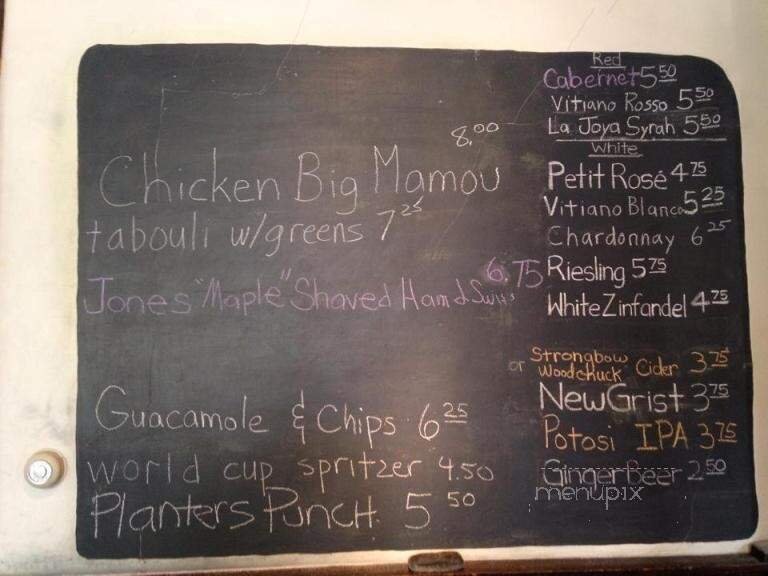 8.00
Chicken Big Mamou
tabouli w/greens 7 25
6.75
Jones "Maple" Shaved Ham & Swiss
Guacamole & Chips 6 25
world cup spritzer 4.50
Planters Punch 5 50
Red
Cabernet 5 50
Vitiano Rosso 5 50
La Joya Syrah 5 50
White
Petit Rosé 4 75
Vitiano Blanco 5 25
Chardonnay 6 25
Riesling 5 75
White Zinfandel 4 75
Strongbow
or Woodchuck Cider 3 75
New Grist 3 75
Potosi IPA 3 75
Ginger Beer 2 50
menupix